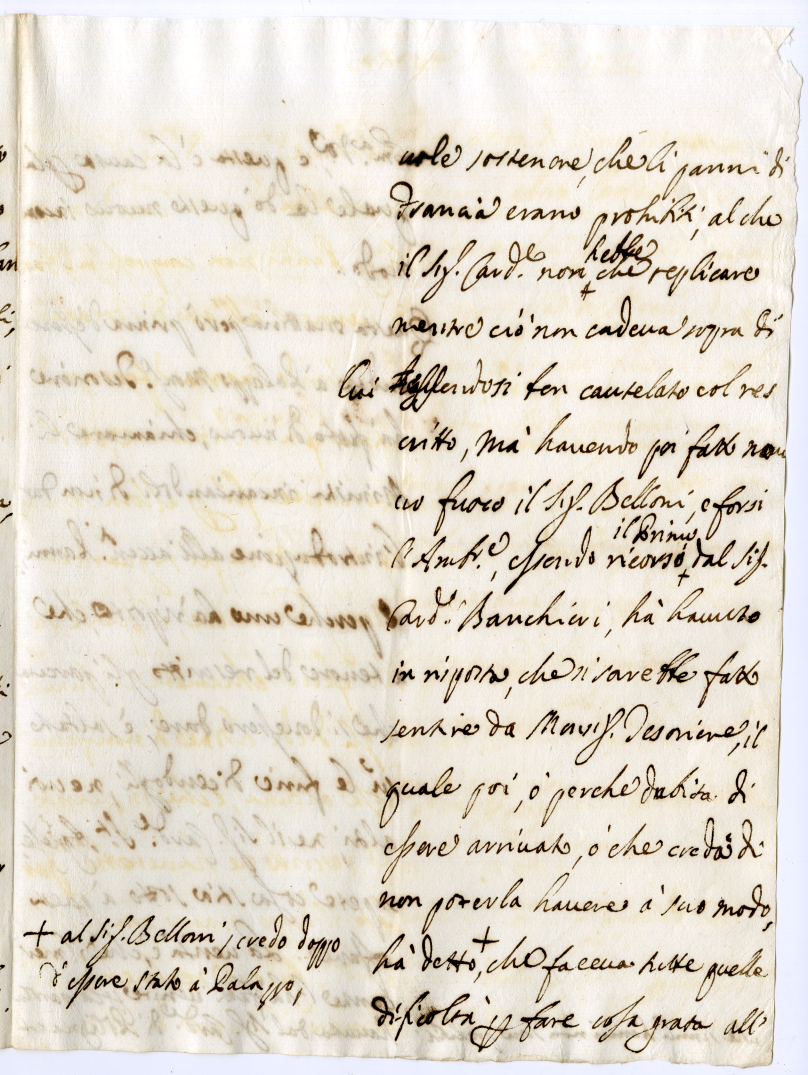 uole sostenere, che li panni di
Francia erano prohibiti, al che
hebbe
il Sig.r Card.le non + che replicare
mentre ciò non cadeua sopra di
lui essendosi ben cautelato col res
critto, mà hauendo poi fatto nuou
uo fuoco il Sig.r Belloni, e forsi
il Primo
l'Amb.re, essendo ricorso + dal Sig.r
Card.le Banchieri, hà hauuto
in risposta, che si sarebbe fatto
sentire da Monsig.r Tesoriere, il
quale poi, ò perche dubita di
essere arriuato, ò che creda di
non poterla hauere à suo modo,
hà detto, + che faceua tutte quelle
dificoltà p fare cosa grata all'
+ al Sig.r Belloni, credo doppo
d'essere stato à Palazzo,